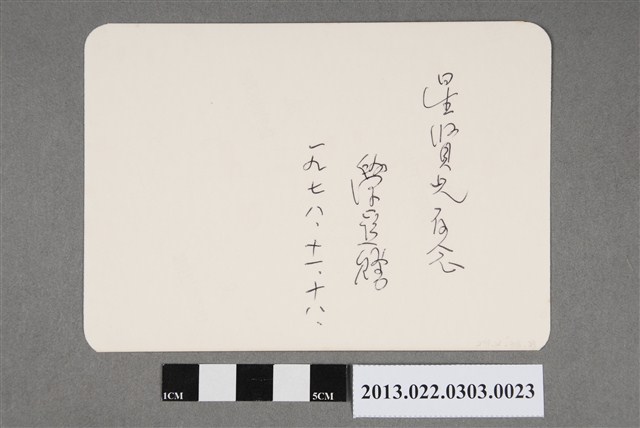 星賢兄存念
一九七八、十一、十八、
1CM
5CM
2013.022.0303.0023